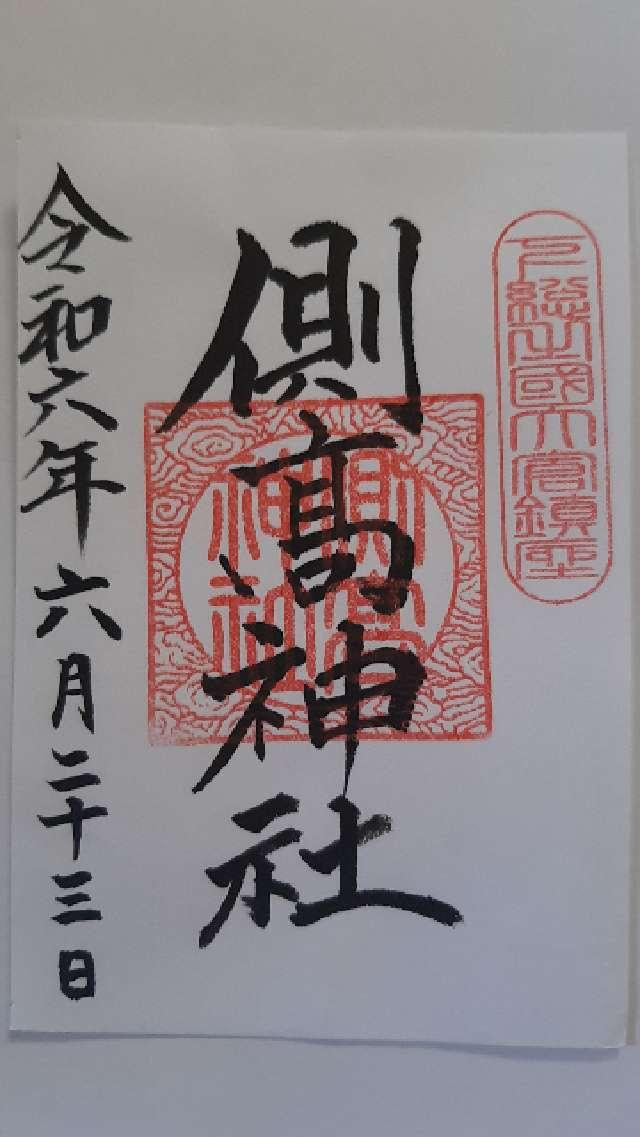 下總之國大倉鎮座
側高神社
側高神社
令和六年六月二十三日